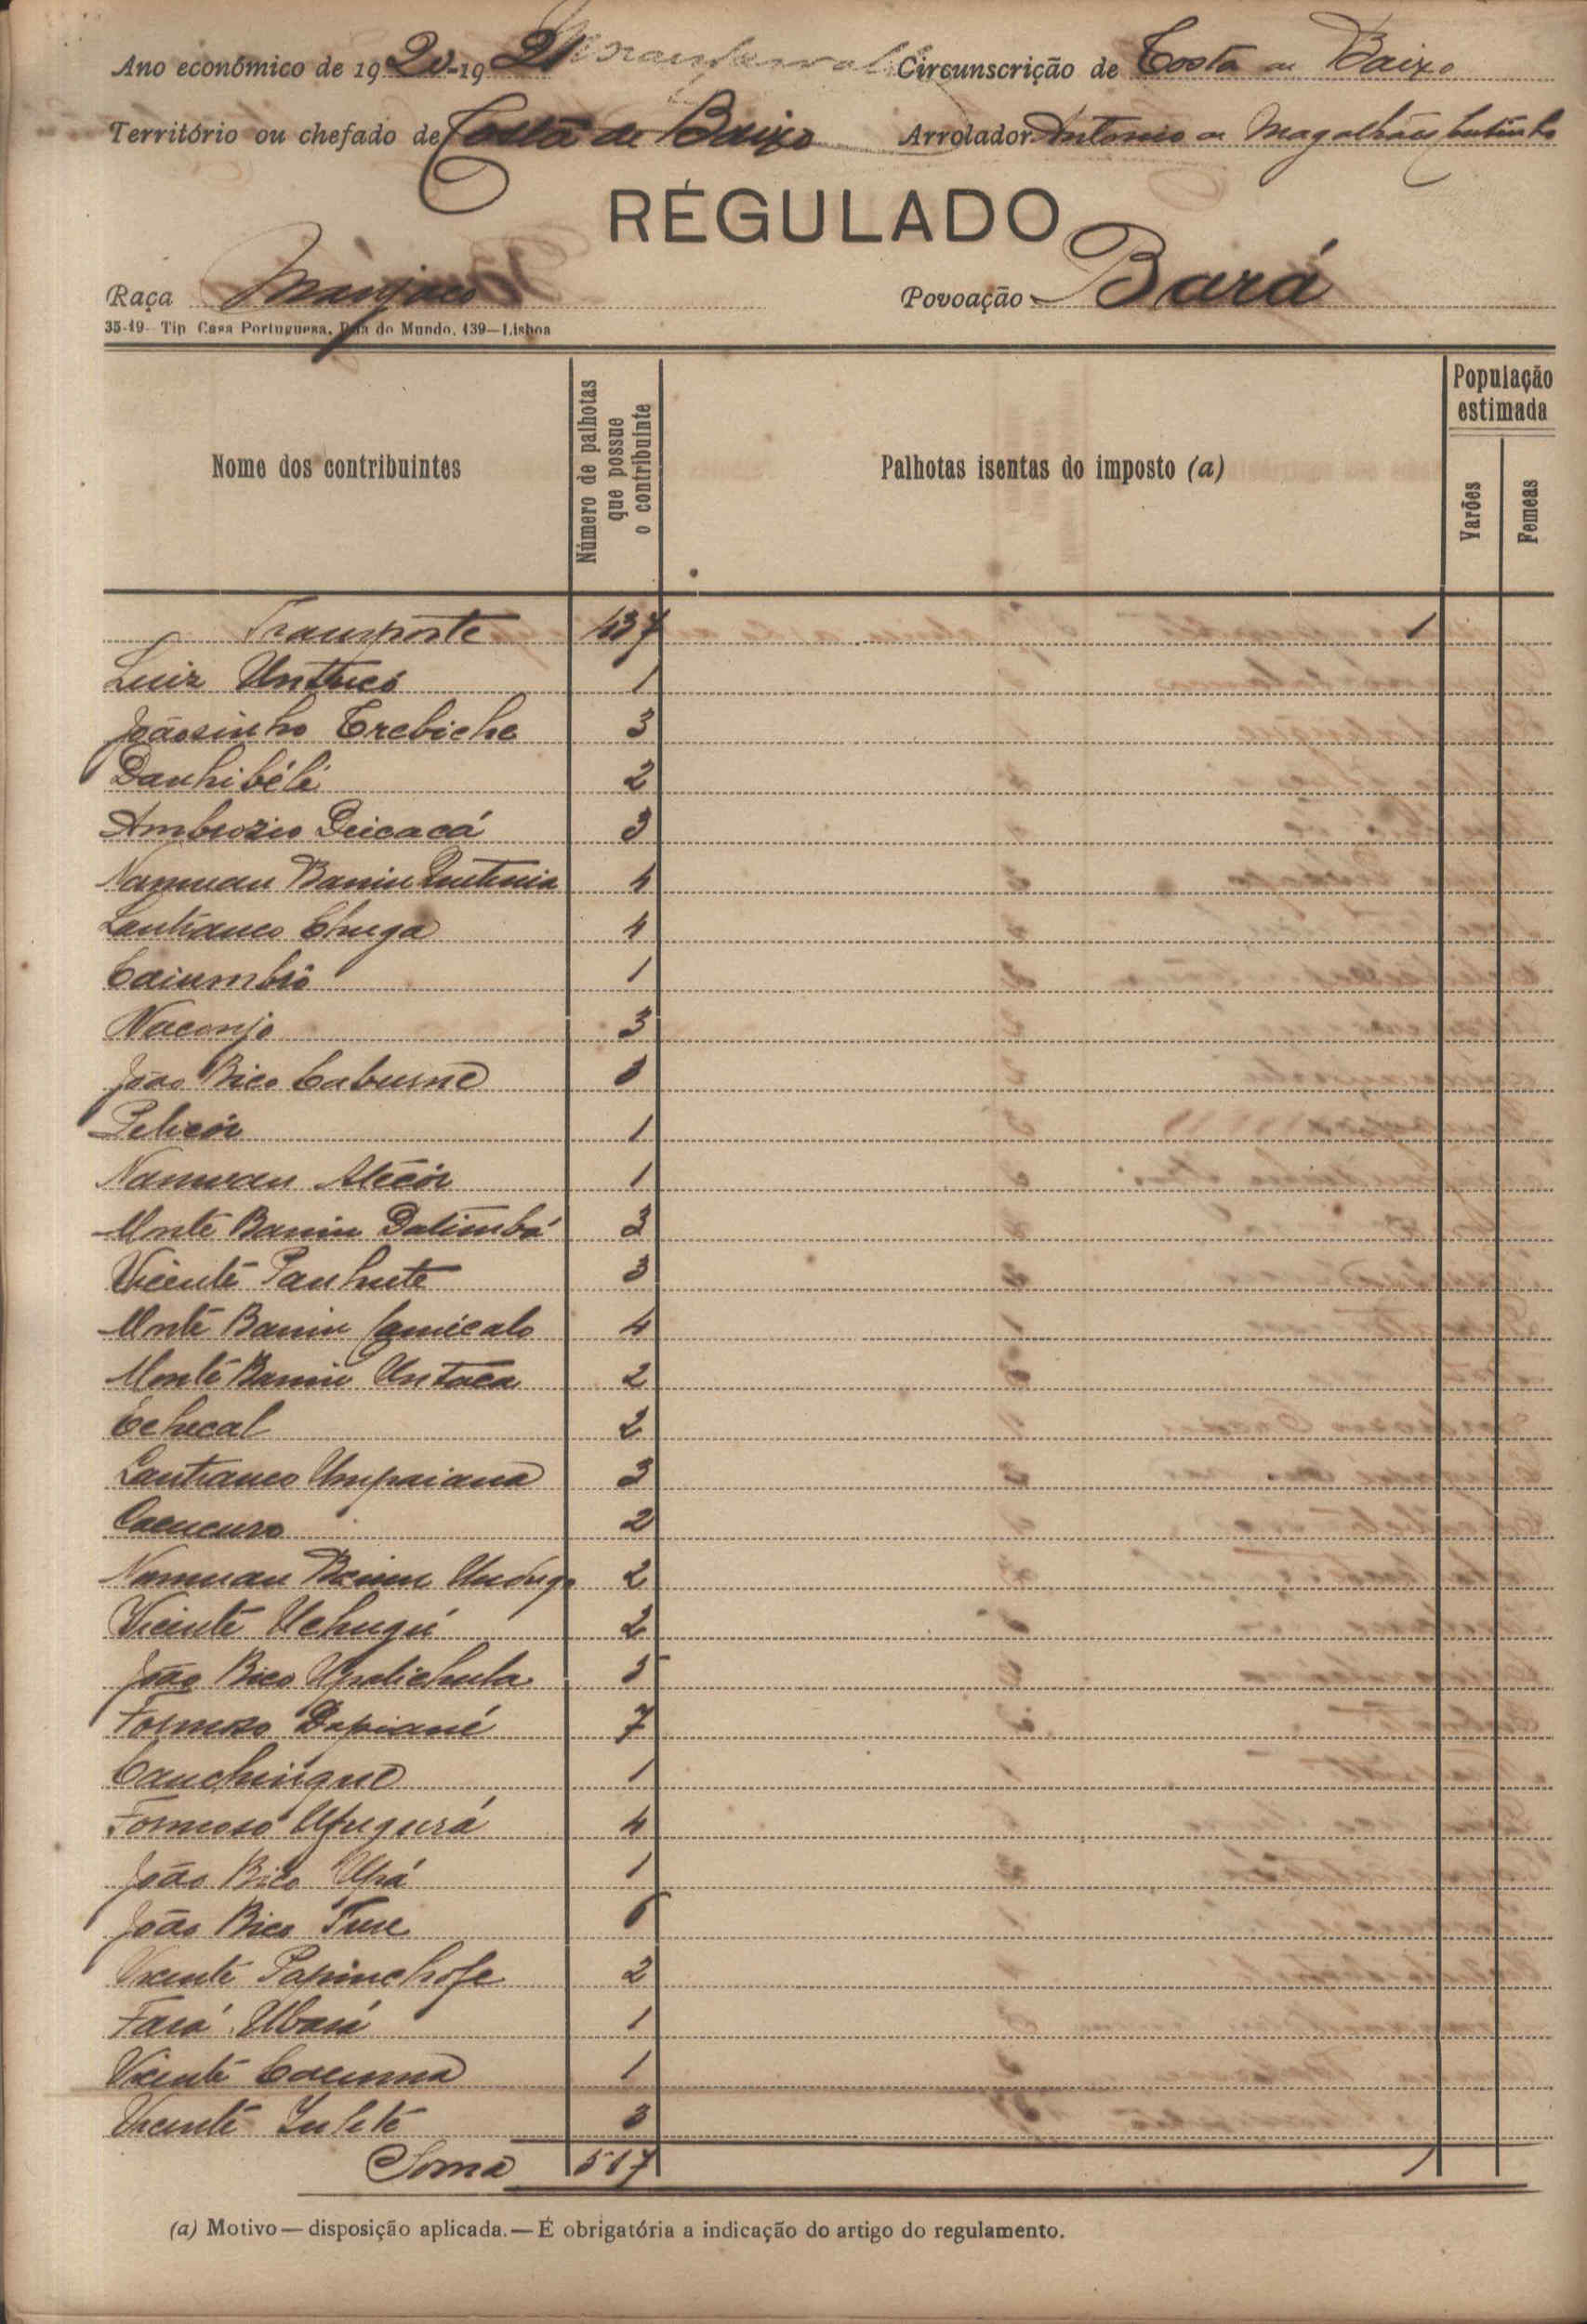 Ano económico de 1920-1921 Circunscrição de Costa de Baixo
Território ou chefado de Costa de Baixo Arrolador Antonio de Magalhães Coutinho
RÉGULADO
Raça Manjaco Povoação Bará
35-19- Tip Casa Portuguesa, Rua do Mundo, 139—Lisboa
Nome dos contribuintes
Número de palhotas que possue o contribuinte
Palhotas isentas do imposto (a)
População estimada
Varões
Femeas
Transporte 437 1
Luiz 1
Joãosinho Trebiche 3
Danhibélé 2
Ambrozio Deicacá 3
Namuau Banin 4
Lantranco Chuga 4
Caiumbrô 1
Naconjo 3
João Bico Caburne
1
Namuau 1
Monté Banin Datimbá 3
Vicente Panhute 3
Monté Banin Camicalo 4
Monté Banin Untaca 2
2
Lantranco Umpaiana 3
2
Namuau Banin 2
Vicente Uchugú 2
João Bico Upalichula 5
Formoso Dapiané 7
Canchingue 1
Formoso 4
João Bico Upá 1
João Bico 6
Vicente Papinchofe 2
Fará Ubará 1
Vicente 1
Vicente 3
Soma 517 1
(a) Motivo—disposição aplicada.—É obrigatória a indicação do artigo do regulamento.